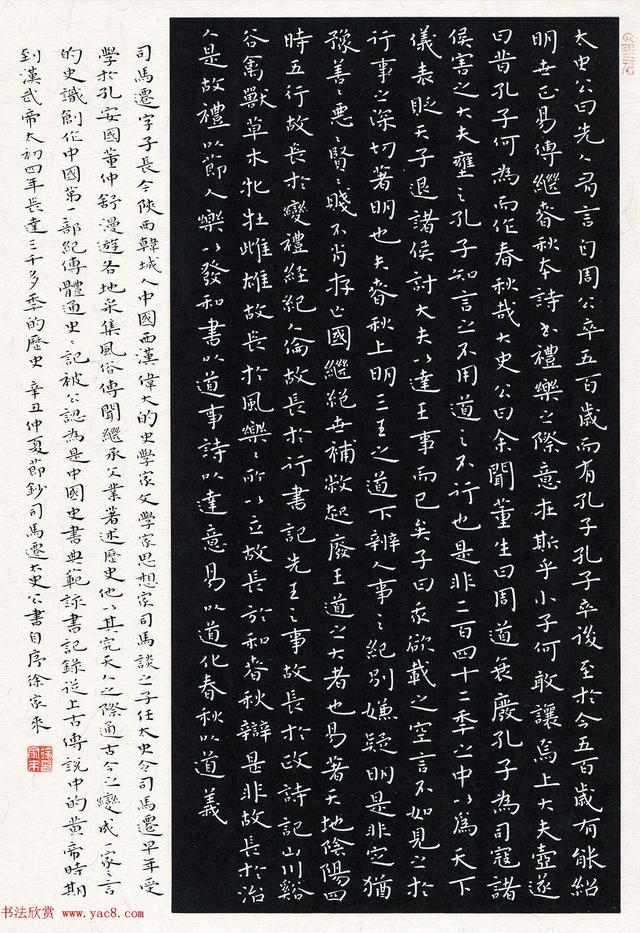 太史公曰先人有言自周公卒五百歲而有孔子孔子卒後至於今五百歲有能紹
明世正易傳繼春秋本詩書禮樂之際意在斯乎小子何敢讓焉上大夫壺遂
曰昔孔子何為而作春秋哉太史公曰余聞董生曰周道衰廢孔子為司寇諸
侯害之大夫壅之孔子知言之不用道之不行也是非二百四十二年之中以為天下
儀表貶天子退諸侯討大夫以達王事而已矣子曰我欲載之空言不如見之於
行事之深切著明也夫春秋上明三王之道下辨人事之紀別嫌疑明是非定猶
豫善善惡惡賢賢賤不肖存亡國繼絕世補敝起廢王道之大者也易著天地陰陽四
時五行故長於變禮經紀人倫故長於行書記先王之事故長於政詩記山川谿
谷禽獸草木牝牡雌雄故長於風樂樂所以立故長於和春秋辯是非故長於治
人是故禮以節人樂以發和書以道事詩以達意易以道化春秋以道義
司馬遷字子長今陝西韓城人中國西漢偉大的史學家文學家思想家司馬談之子任太史令司馬遷早年受
學於孔安國董仲舒漫遊各地采集風俗傳聞繼承父業著述歷史他以其究天人之際通古今之變成一家之言
的史識創作中國第一部紀傳體通史史記被公認為是中國史書典範該書記錄從上古傳說中的黃帝時期
到漢武帝太初四年長達三千多年的歷史 辛丑仲夏節鈔司馬遷太史公書自序徐家來
书法欣赏 www.yac8.com